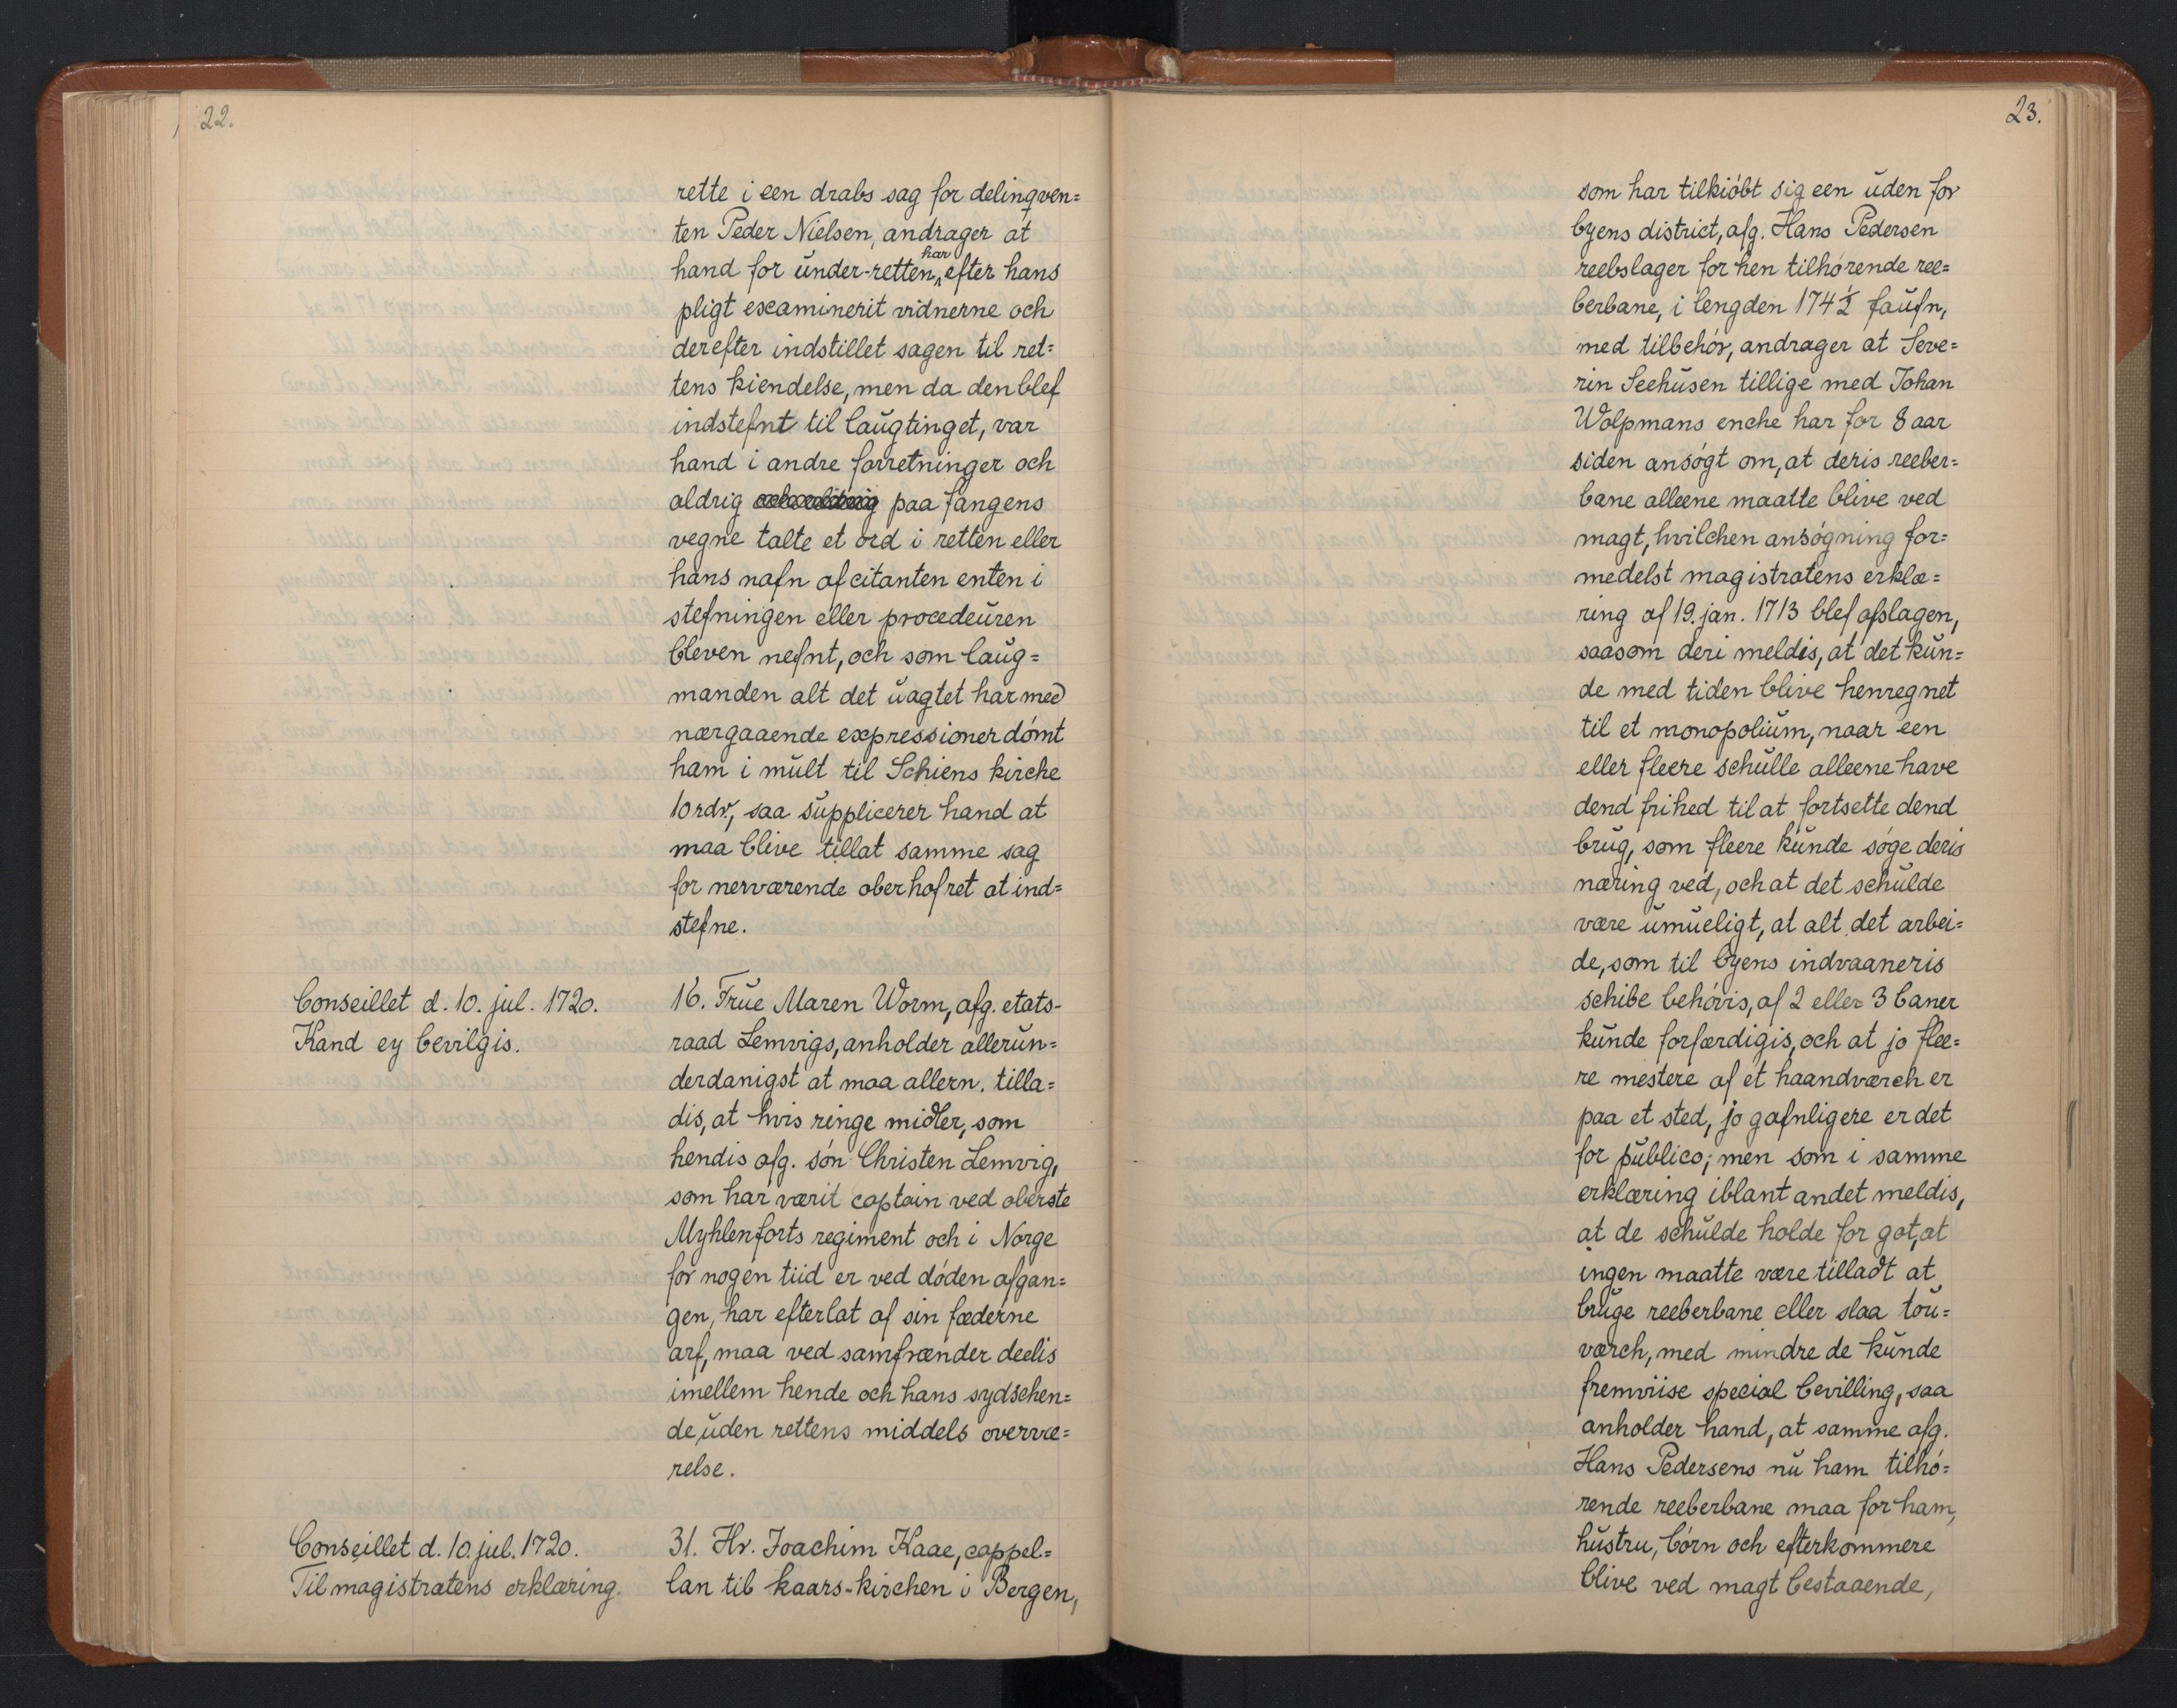 22.
rette i een drabs sag for delinqven=
ten Peder Nielsen, andrager at
hand for ŭnder-retten har efter hans
pligt examinerit vidnerne och
derefter indstillet sagen til ret=
tens kiendelse, men da den blef
indstefnt til laŭgtinget, var
hand i andre forretninger och
aldrig paa fangens
vegne talte et ord i retten eller
hans nafn af citanten enten i
stefningen eller procedeŭren
bleven nefnt, och som laŭg=
manden alt det ŭagtet har med
nærgaaende expressioner dómt
ham i mŭlt til Schiens kirche
10 rdr., saa sŭpplicerer hand at
maa blive tillat samme sag
for nerværende oberhofret at ind=
stefne.
Conseillet d. 10. jul. 1720.
Kand ey bevilgis.
16. Frŭe Maren Worm, afg. etats-
raad Lemvigs, anholder allerŭn=
derdanigst at maa allern. tilla=
dis, at hvis ringe midler, som
hendis afg. són Christen Lemvig,
som har værit captain ved oberste
Myhlenforts regiment och i Norge
for nogen tiid er ved dóden afgan=
gen, har efterlat af sin fæderne
arf, maa ved samfrænder deelis
imellem hende och hans sydschen=
de ŭden rettens middels overvæ=
relse.
Conseillet d. 10. jul. 1720.
Til magistratens erklæring.
31. Hr. Joachim Kaae, cappel=
lan til kaars-kirchen i Bergen,
23.
som har tilkióbt sig een ŭden for
byens district, afg. Hans Pedersen
reebslager for hen tilhórende ree=
berbane, i lengden 174½ faŭfn,
med tilbehór, andrager at Seve=
rin Seehŭsen tillige med Johan
Wolpmans enche har for 8 aar
siden ansógt om, at deris reeber=
bane alleene maatte blive ved
magt, hvilchen ansógning for=
medelst magistratens erklæ=
ring af 19. jan. 1713 blef afslagen,
saasom deri meldis, at det kŭn=
de med tiden blive henregnet
til et monopoliŭm, naar een
eller fleere schŭlle alleene have
dend frihed til at fortsette dend
brŭg, som fleere kŭnde sóge deris
næring ved, och at det schŭlde
være ŭmŭeligt, at alt det arbei=
de, som til byens indvaaneris
schibe behóvis, af 2 eller 3 baner
kŭnde forfærdigis, och at jo flee=
re mestere af et haandværch er
paa et sted, jo gafnligere er det
for pŭblico; men som i samme
erklæring iblant andet meldis,
at de schŭlde holde for got, at
ingen maatte være tilladt at
brŭge reeberbane eller slaa toŭ=
værch, med mindre de kŭnde
fremviise special bevilling, saa
anholder hand, at samme afg.
Hans Pedersens nŭ ham tilhó=
rende reeberbane maa for ham,
hŭstru, bórn och efterkommere
blive ved magt bestaaende,